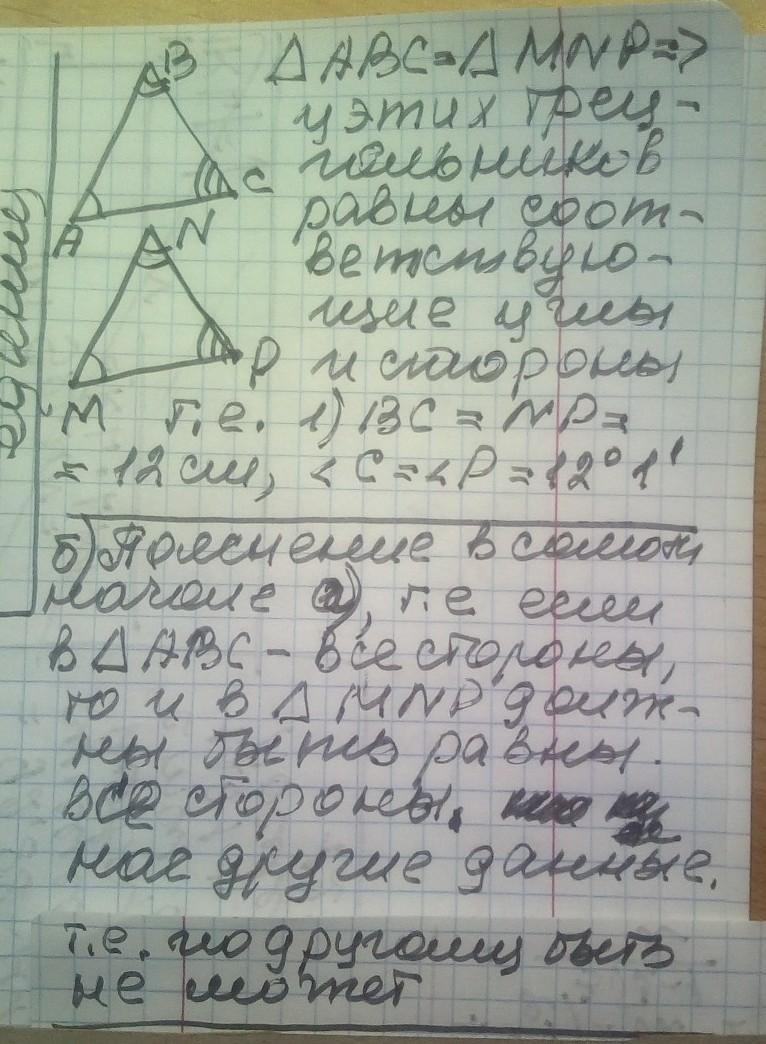 В
ΔABC=ΔMNP=>
у этих треу-
гольников
C
равны соот-
A
N
ветствую-
щие углы
P
и стороны
M т.е. 1) BC = NP =
= 12 см, ∠C=∠P=12°1'
б) Пояснение в самом
начале а), т.е если
в ΔABC - все стороны,
то и в ΔMNP долж-
ны быть равны.
все стороны.
нас другие данные.
т.е. по другому быть
не может